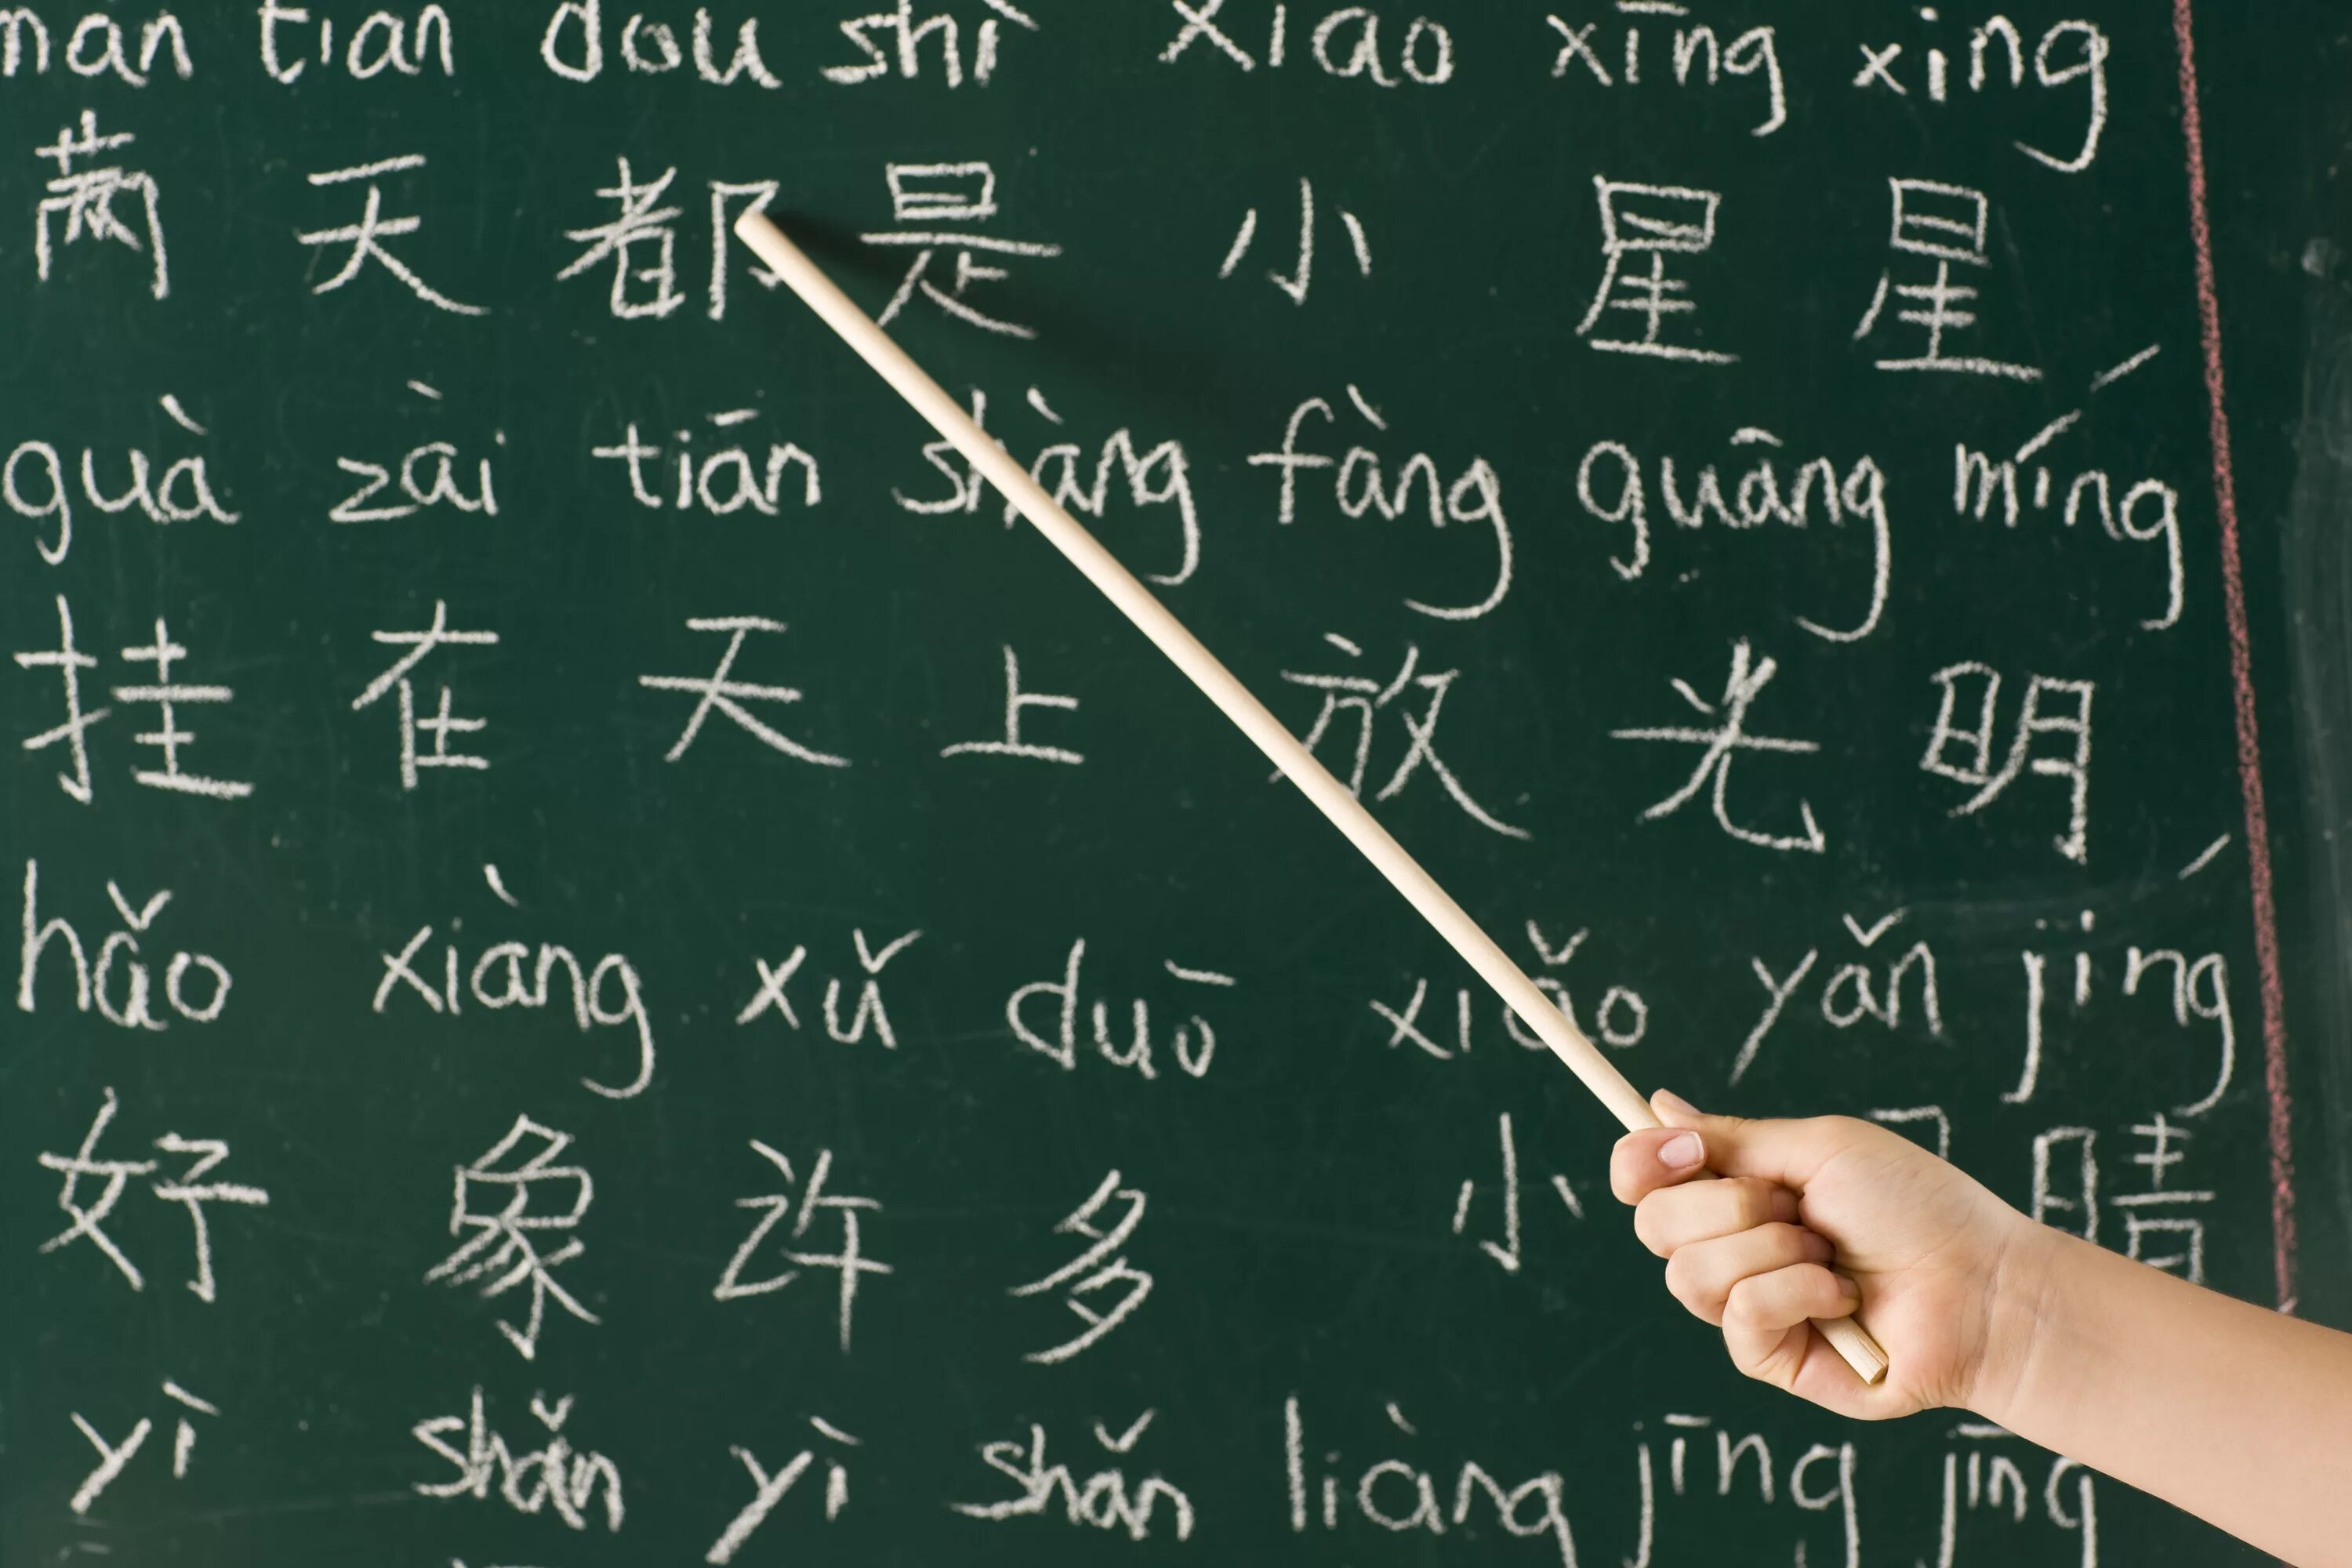 nan tian dou shì xiao xīng xing
天 都 是 小 星 星
guà zài tiān shàng fàng guāng míng
挂 在 天 上 放 光 明
hǎo xiàng xǔ duō xiǎo yǎn jing
好 象 许 多 小 睛
yì shǎn yì shǎn liàng jīng jīng